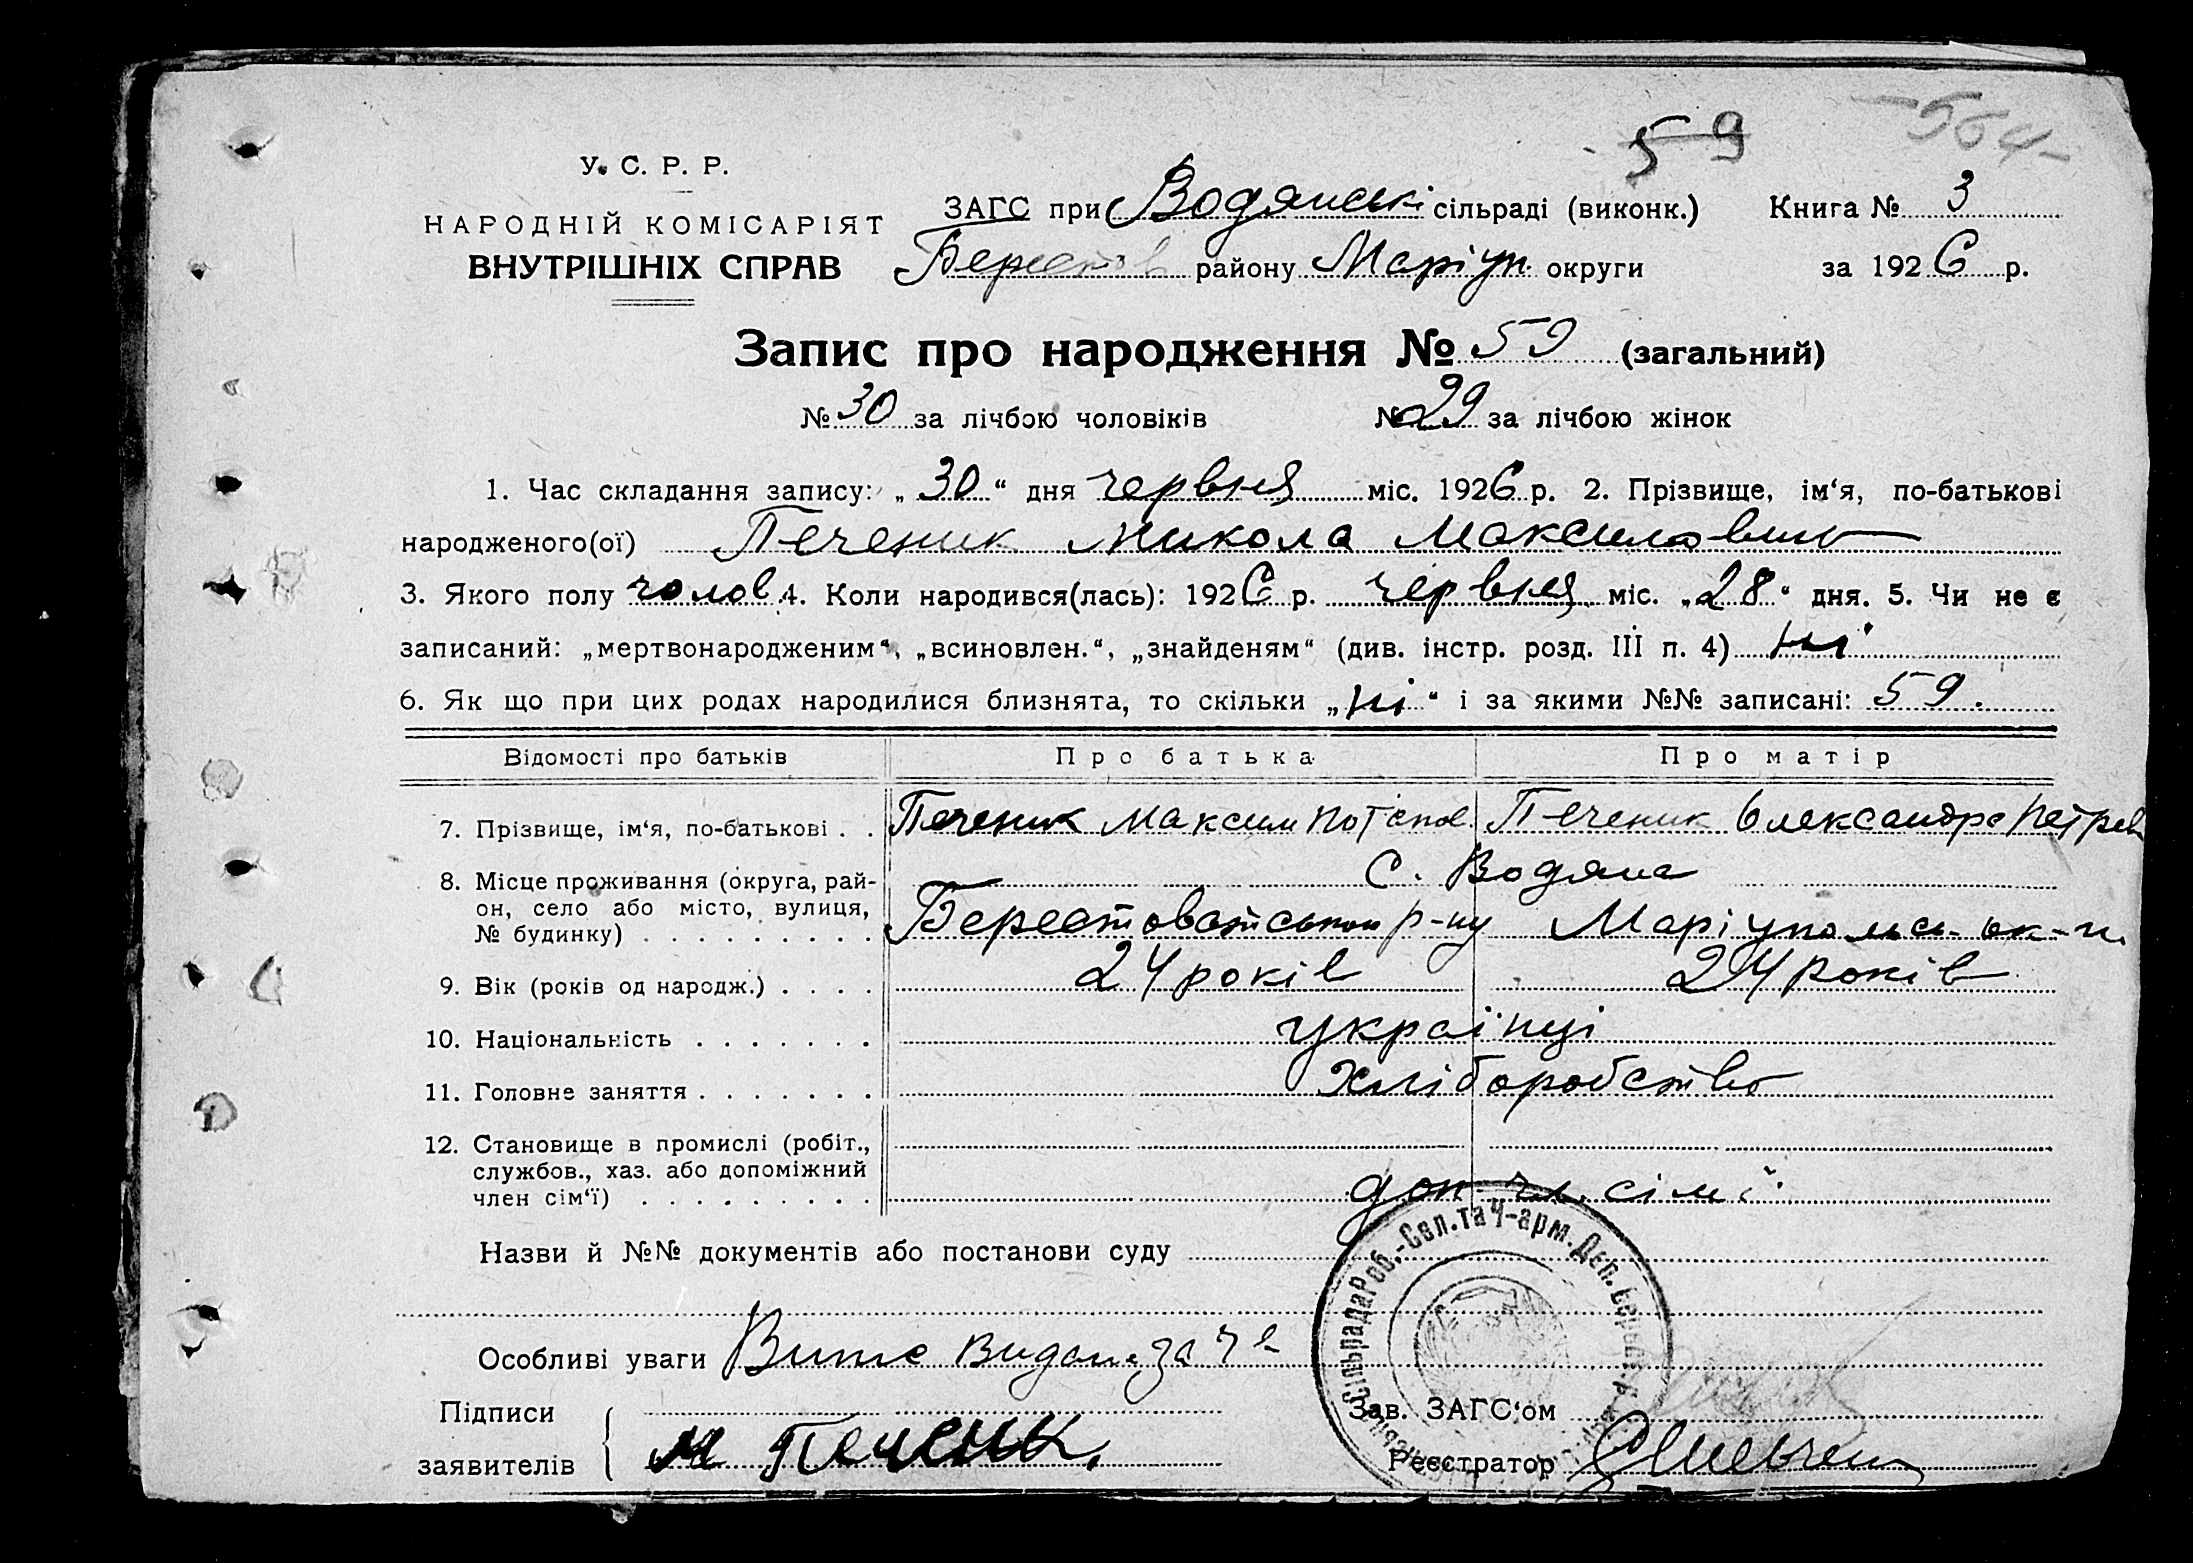 59 -564-
У. С. Р. Р.
НАРОДНІЙ КОМІСАРІЯТ
ВНУТРІШНІХ СПРАВ
ЗАГС при Водянські сільраді (виконк.) Книга № 3
Берестов району Маріуп. округи за 1926 р.
Запис про народження № 59 (загальний)
№ 30 за лічбою чоловіків № 29 за лічбою жінок
1. Час складання запису: „30“ дня червня міс. 1926 р. 2. Прізвище, ім‘я, по-батькові
народженого(ої) Печеник Микола Максимович
3. Якого полу чолов 4. Коли народився(лась): 1926 р. червня міс. „28“ дня. 5. Чи не є
записаний: „мертвонародженим“, „всиновлен.“, „знайденям“ (див. інстр. розд. III п. 4) ні
6. Як що при цих родах народилися близнята, то скільки „ні“ і за якими №№ записані: 59.
Відомості про батьків Про батька Про матір
7. Прізвище, ім‘я, по-батькові . . Печеник Максим Потапов. Печеник Олександра Петров
8. Місце проживання (округа, рай- с. Водяна
он, село або місто, вулиця, Берестоватськой р-ну Маріупольсь. ок-и.
№ будинку) . . . . . . . . .
9. Вік (років од народж.) . . . . 24 років 24 років
10. Національність . . . . . . . українці
11. Головне заняття . . . . . . . Хліборобство
12. Становище в промислі (робіт.,
службов., хаз. або допоміжний
член сім‘ї) . . . . . . . . . доп. чл. сімї
Назви й №№ документів або постанови суду
Сільрада Роб.-Сел. та Ч-арм. Деп.
Особливі уваги Витяг видан за №
Підписи Зав. ЗАГС‘ом
заявителів М Печеник. Реєстратор